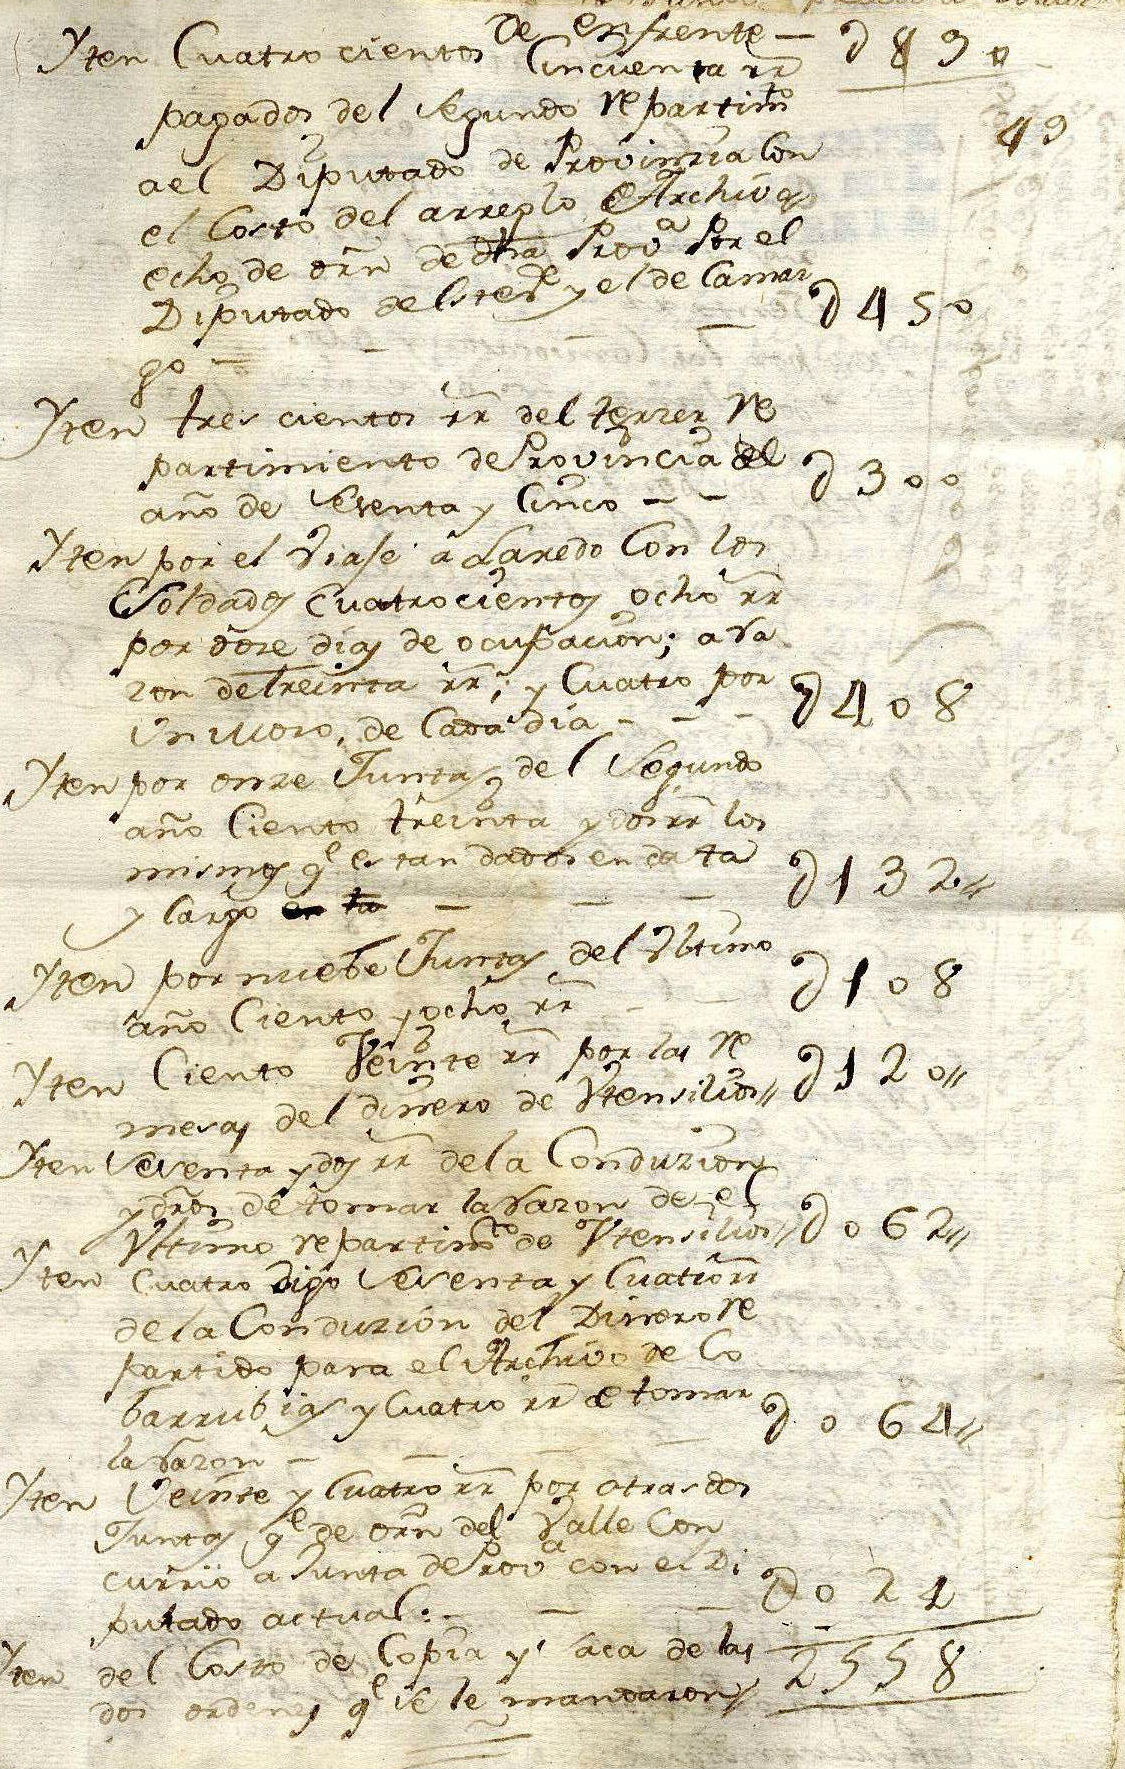 De enfrente — D 890
Yten Cuatro cientos Cincuenta rr
pagados del Segundo repartimto
49
a el Diputado de Provinzia Con
el Costo del arreglo Archivo
echo de orn de dha Prova Por el
Diputado de y el de Camar
go — — — D 450
Yten tres cientos rr del terzer re
partimiento de Provincia del
año de Setenta y Cinco — — D 300
Yten por el viaje a Laredo Con los
Soldados cuatrocientos ocho rr
por doze dias de ocupacion; a Ra
zon de treinta rr; y Cuatro por
Un Mozo, de Cada dia — — — D 408
Yten por onze Juntas del Segundo
año Ciento treinta y dos rr los
mismos qe estan dados en data
y Cargo — — — D 132
Yten por nuebe Juntas del Ultimo
año Ciento y ocho rr — — D 108
Yten Ciento Veinte rr por las re
mesas del dinero de Utensilios D 120
Yten Sesenta y dos rr de la Conduzion
y dros de tomar la Razon de el
Ultimo repartimto de Utensilios D 062
Yten Cuatro digo Sesenta y Cuatro rr
de la Conduzion del Dinero re
partido para el Archivo de Co
barrubias y Cuatro rr de tomar
la Razon — — — D 064
Yten Veinte y Cuatro rr por otras dos
Juntas qe de orn del Valle Con
currio a Junta de Prova con el Di
putado actual: — — — D 024
2558
Yten del Costo de Copia y saca de las
dos ordenes qe se le mandaron